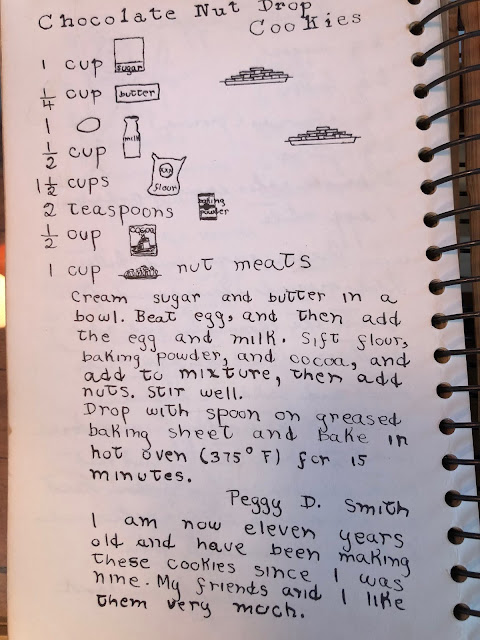 Chocolate Nut Drop
Cookies
1 cup sugar
1/4 cup butter
1
1/2 cup milk
1 1/2 cups flour
2 teaspoons baking powder
1/2 cup cocoa
1 cup nut meats
Cream sugar and butter in a
bowl. Beat egg, and then add
the egg and milk. Sift flour,
baking powder, and cocoa, and
add to mixture, then add
nuts. Stir well.
Drop with spoon on greased
baking sheet and bake in
hot oven (375° F) for 15
minutes.
Peggy D. Smith
I am now eleven years
old and have been making
these cookies since I was
nine. My friends and I like
them very much.